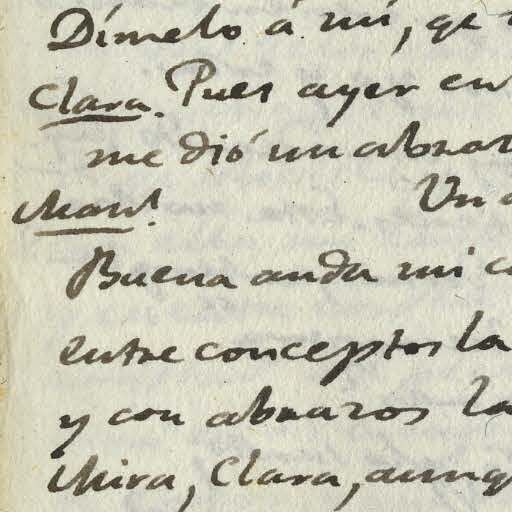 Dímelo á mí, qe
Clara. Pues ayer en
me dió un abraz
Man.l Un
Buena anda mi c
entre conceptos la
y con abrazos la
Mira, Clara, aunq